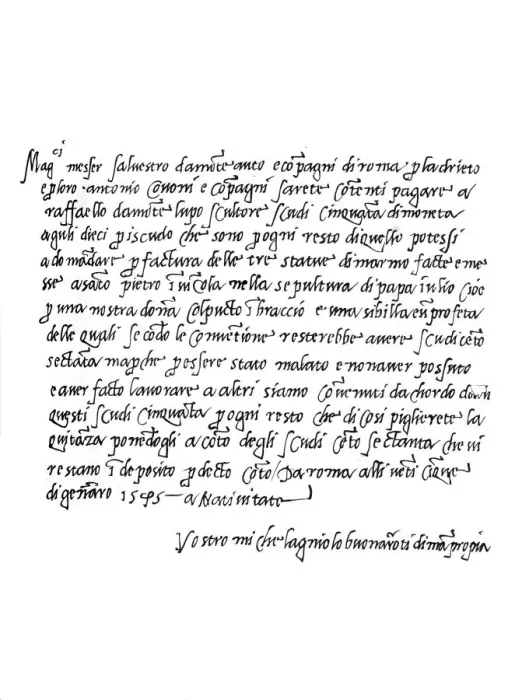 Mag^ci messer Salvestro da mōte auto e cōpagni di roma p lo adrieto
e p loro antonio covoni e cōpagni sarete cōtenti pagare a
raffaello da mōte lupo scultore scudi cinquāta di moneta
a guli dieci p iscudo che sono p ogni resto di quello potessi
a domādare p factura delle tre statue di marmo facte e me
sse a santo pietro ī vīcola nella sepultura di papa iulio cioe
p una nostra dōna col pucto ī braccio e una sibilla e ū profeta
delle quali secōdo le cōvētione resterebbe avere scudi cēto
sectāta ma p che p essere stato malato e nō aver possuto
e aver facto lavorare a altri siamo cōvenuti dachordo
questi scudi cinquāta p ogni resto che di cosi piglierete la
quitāza ponēdogli a cōto degli scudi cēto sectanta che vi
restano ī deposito p decto cōto / Da roma alli vēti cīque
di gēnaro 1545 — a nativitate
Vostro michelagniolo buonaroti di mā propia